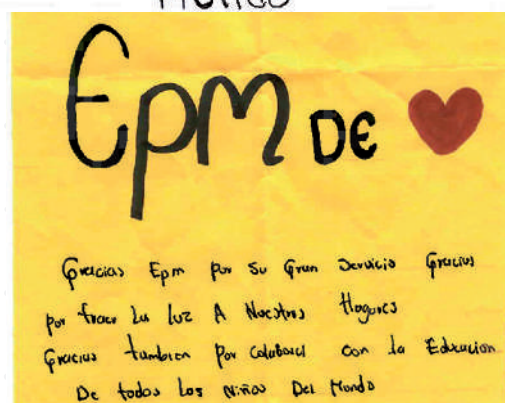 Epm DE
Gracias Epm por su Gran Servicio Gracias
por traer La Luz A Nuestros Hogares
Gracias tambien por colaborar con la Educacion
De todos Los Niños Del Mundo